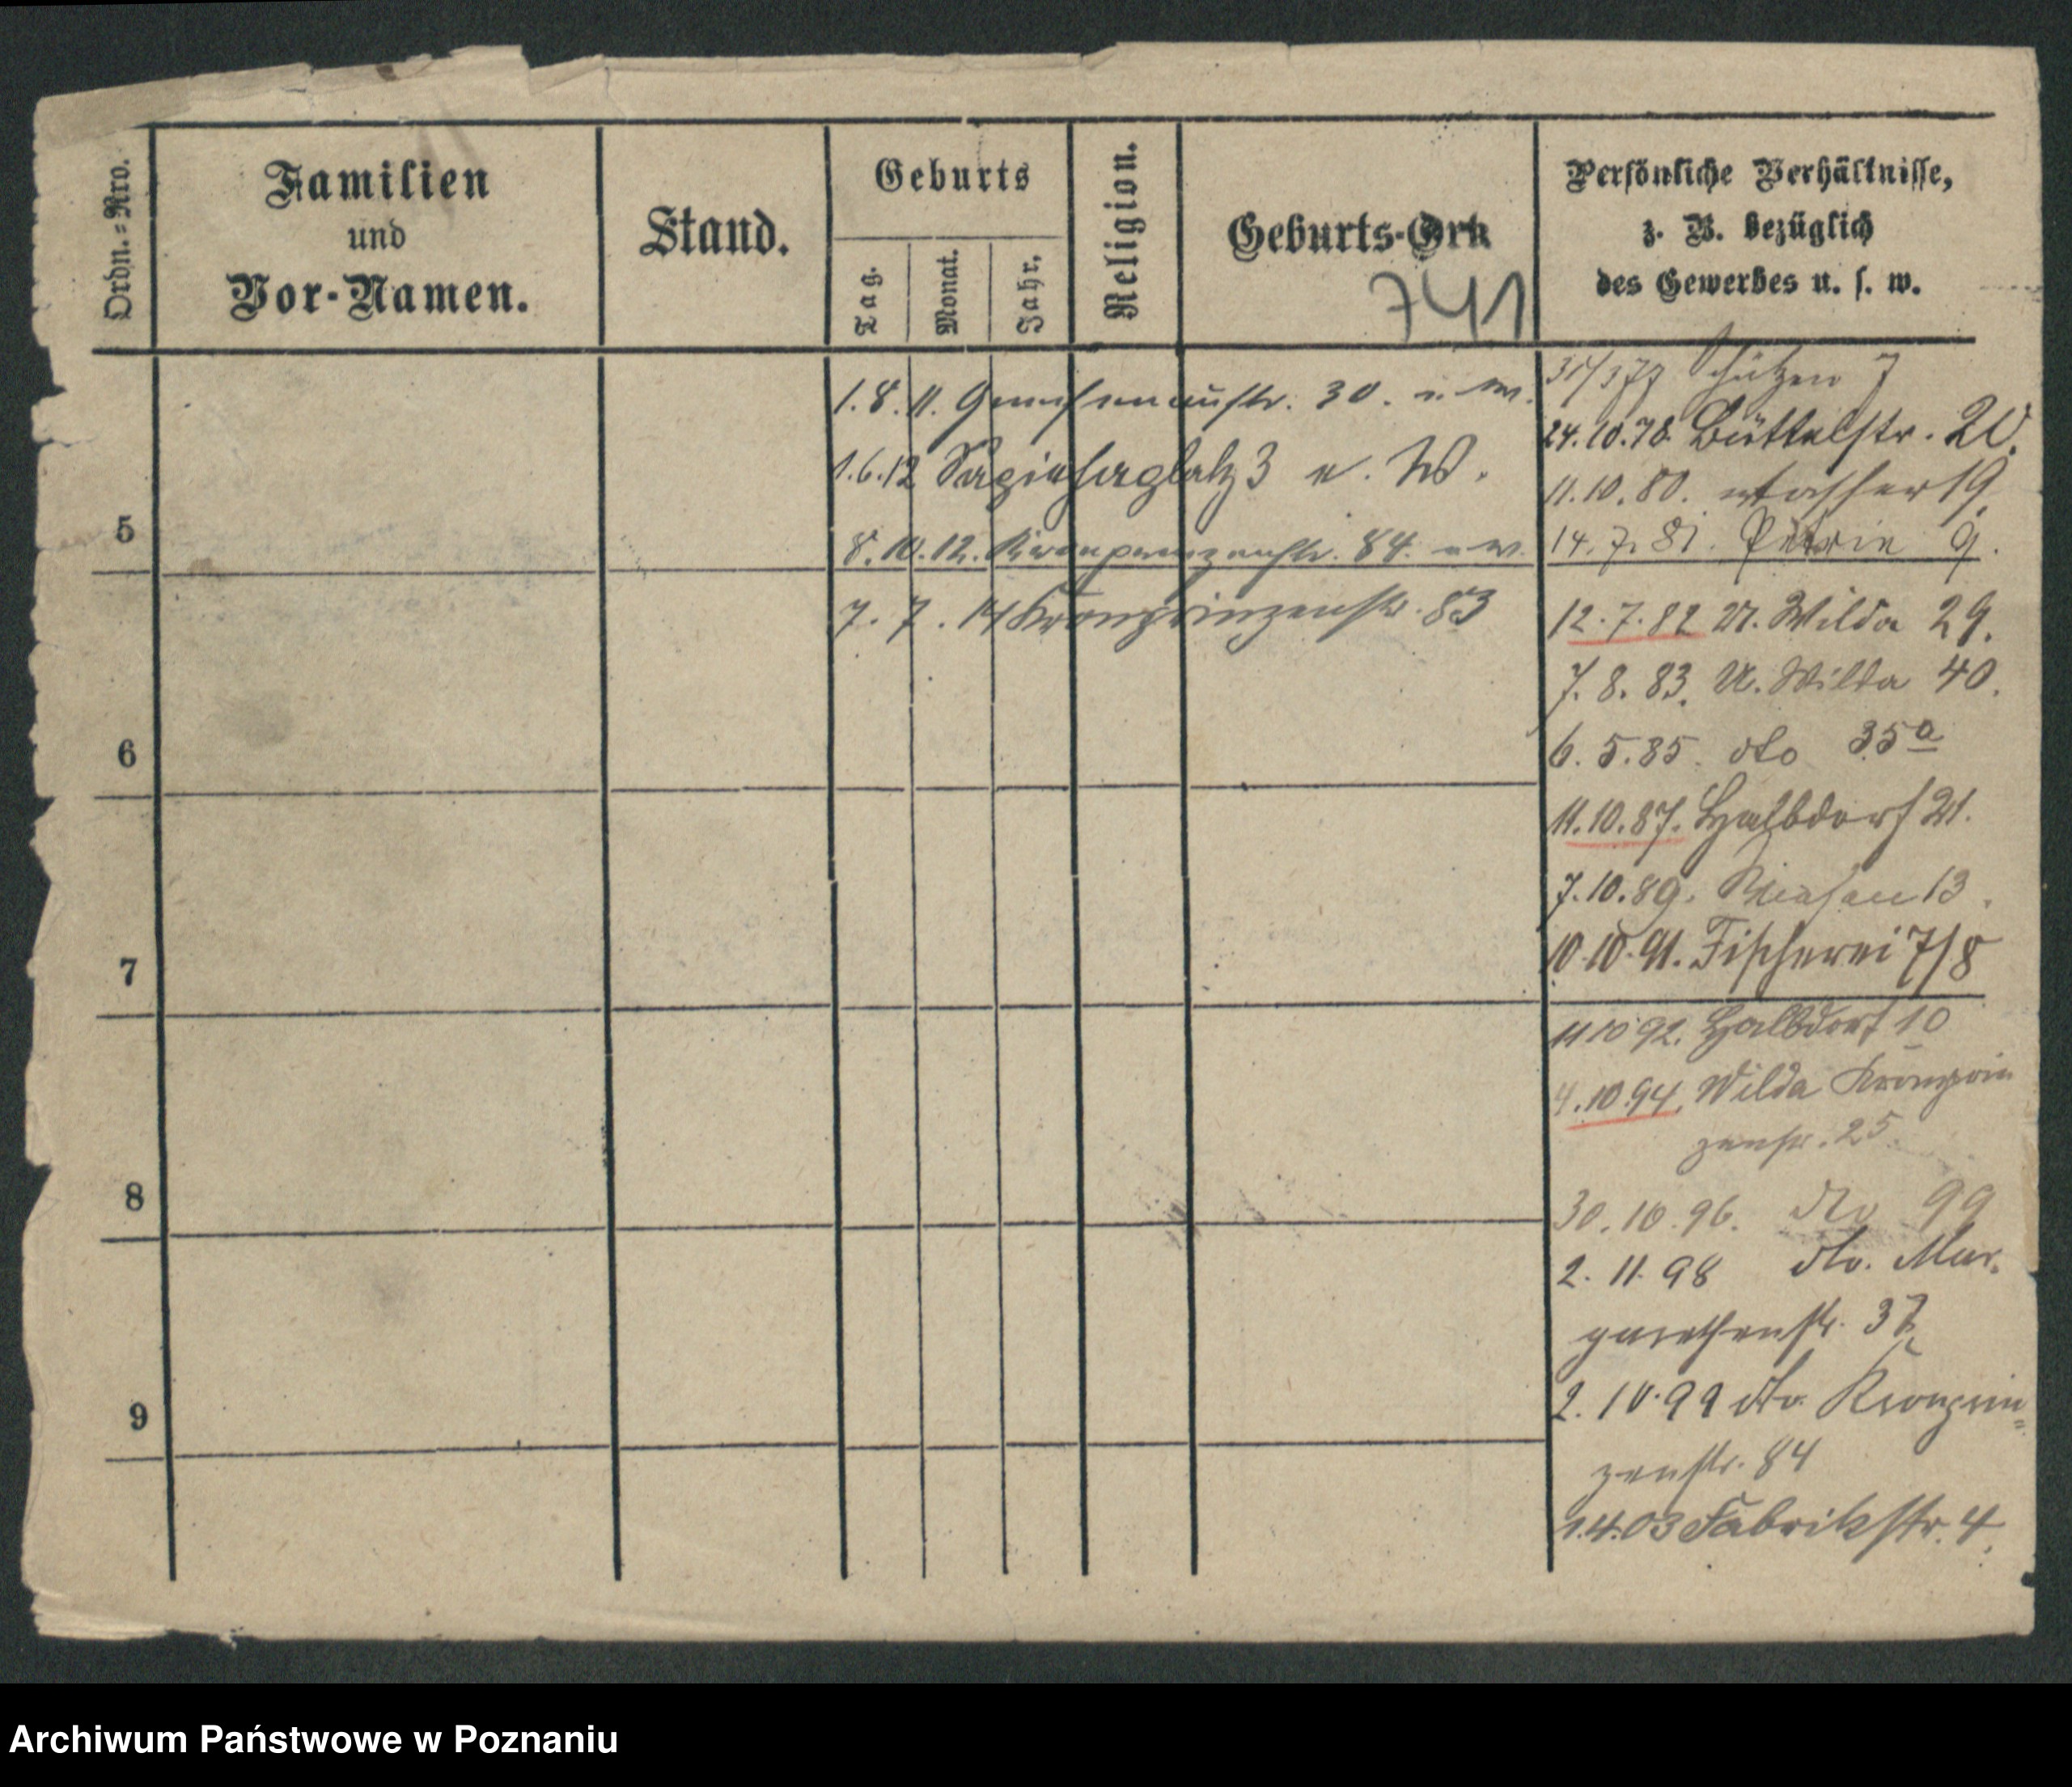 Ordn.=Nro.
Familien
und
Vor-Namen.
Stand.
Geburts
Tag.
Monat.
Jahr.
Religion.
Geburts-Ort
741
Persönliche Verhältnisse,
z. B. bezüglich
des Gewerbes u. s. w.
1.8.11. Gneisenaustr. 30. u. w.
1.6.12 Sapiehaplatz 3 u. W.
8.10.12. Kronprinzenstr. 84. u w.
7. 7. 14 Kronprinzenstr. 83
5
6
7
8
9
Schützen 7
24.10.78. Büttelstr. 20.
11.10.80. 19.
14.7.81. 9.
12.7.82 U. Wilda 29.
7. 8. 83. U. Wilda 40.
6. 5.85. dto 35a
11.10.87. Halbdorf 21.
7.10.89. 13.
10.10.91. Fischerei 7/8
11 10 92. Halbdorf 10
4.10.94. Wilda Kronprin
zenstr. 25.
30.10.96. dto 99
2. 11. 98 dto. Mar.
garethenstr. 37
2. 10.99 dto. Kronprin=
zenstr. 84
1.4.03 Fabrikstr. 4.
Archiwum Państwowe w Poznaniu